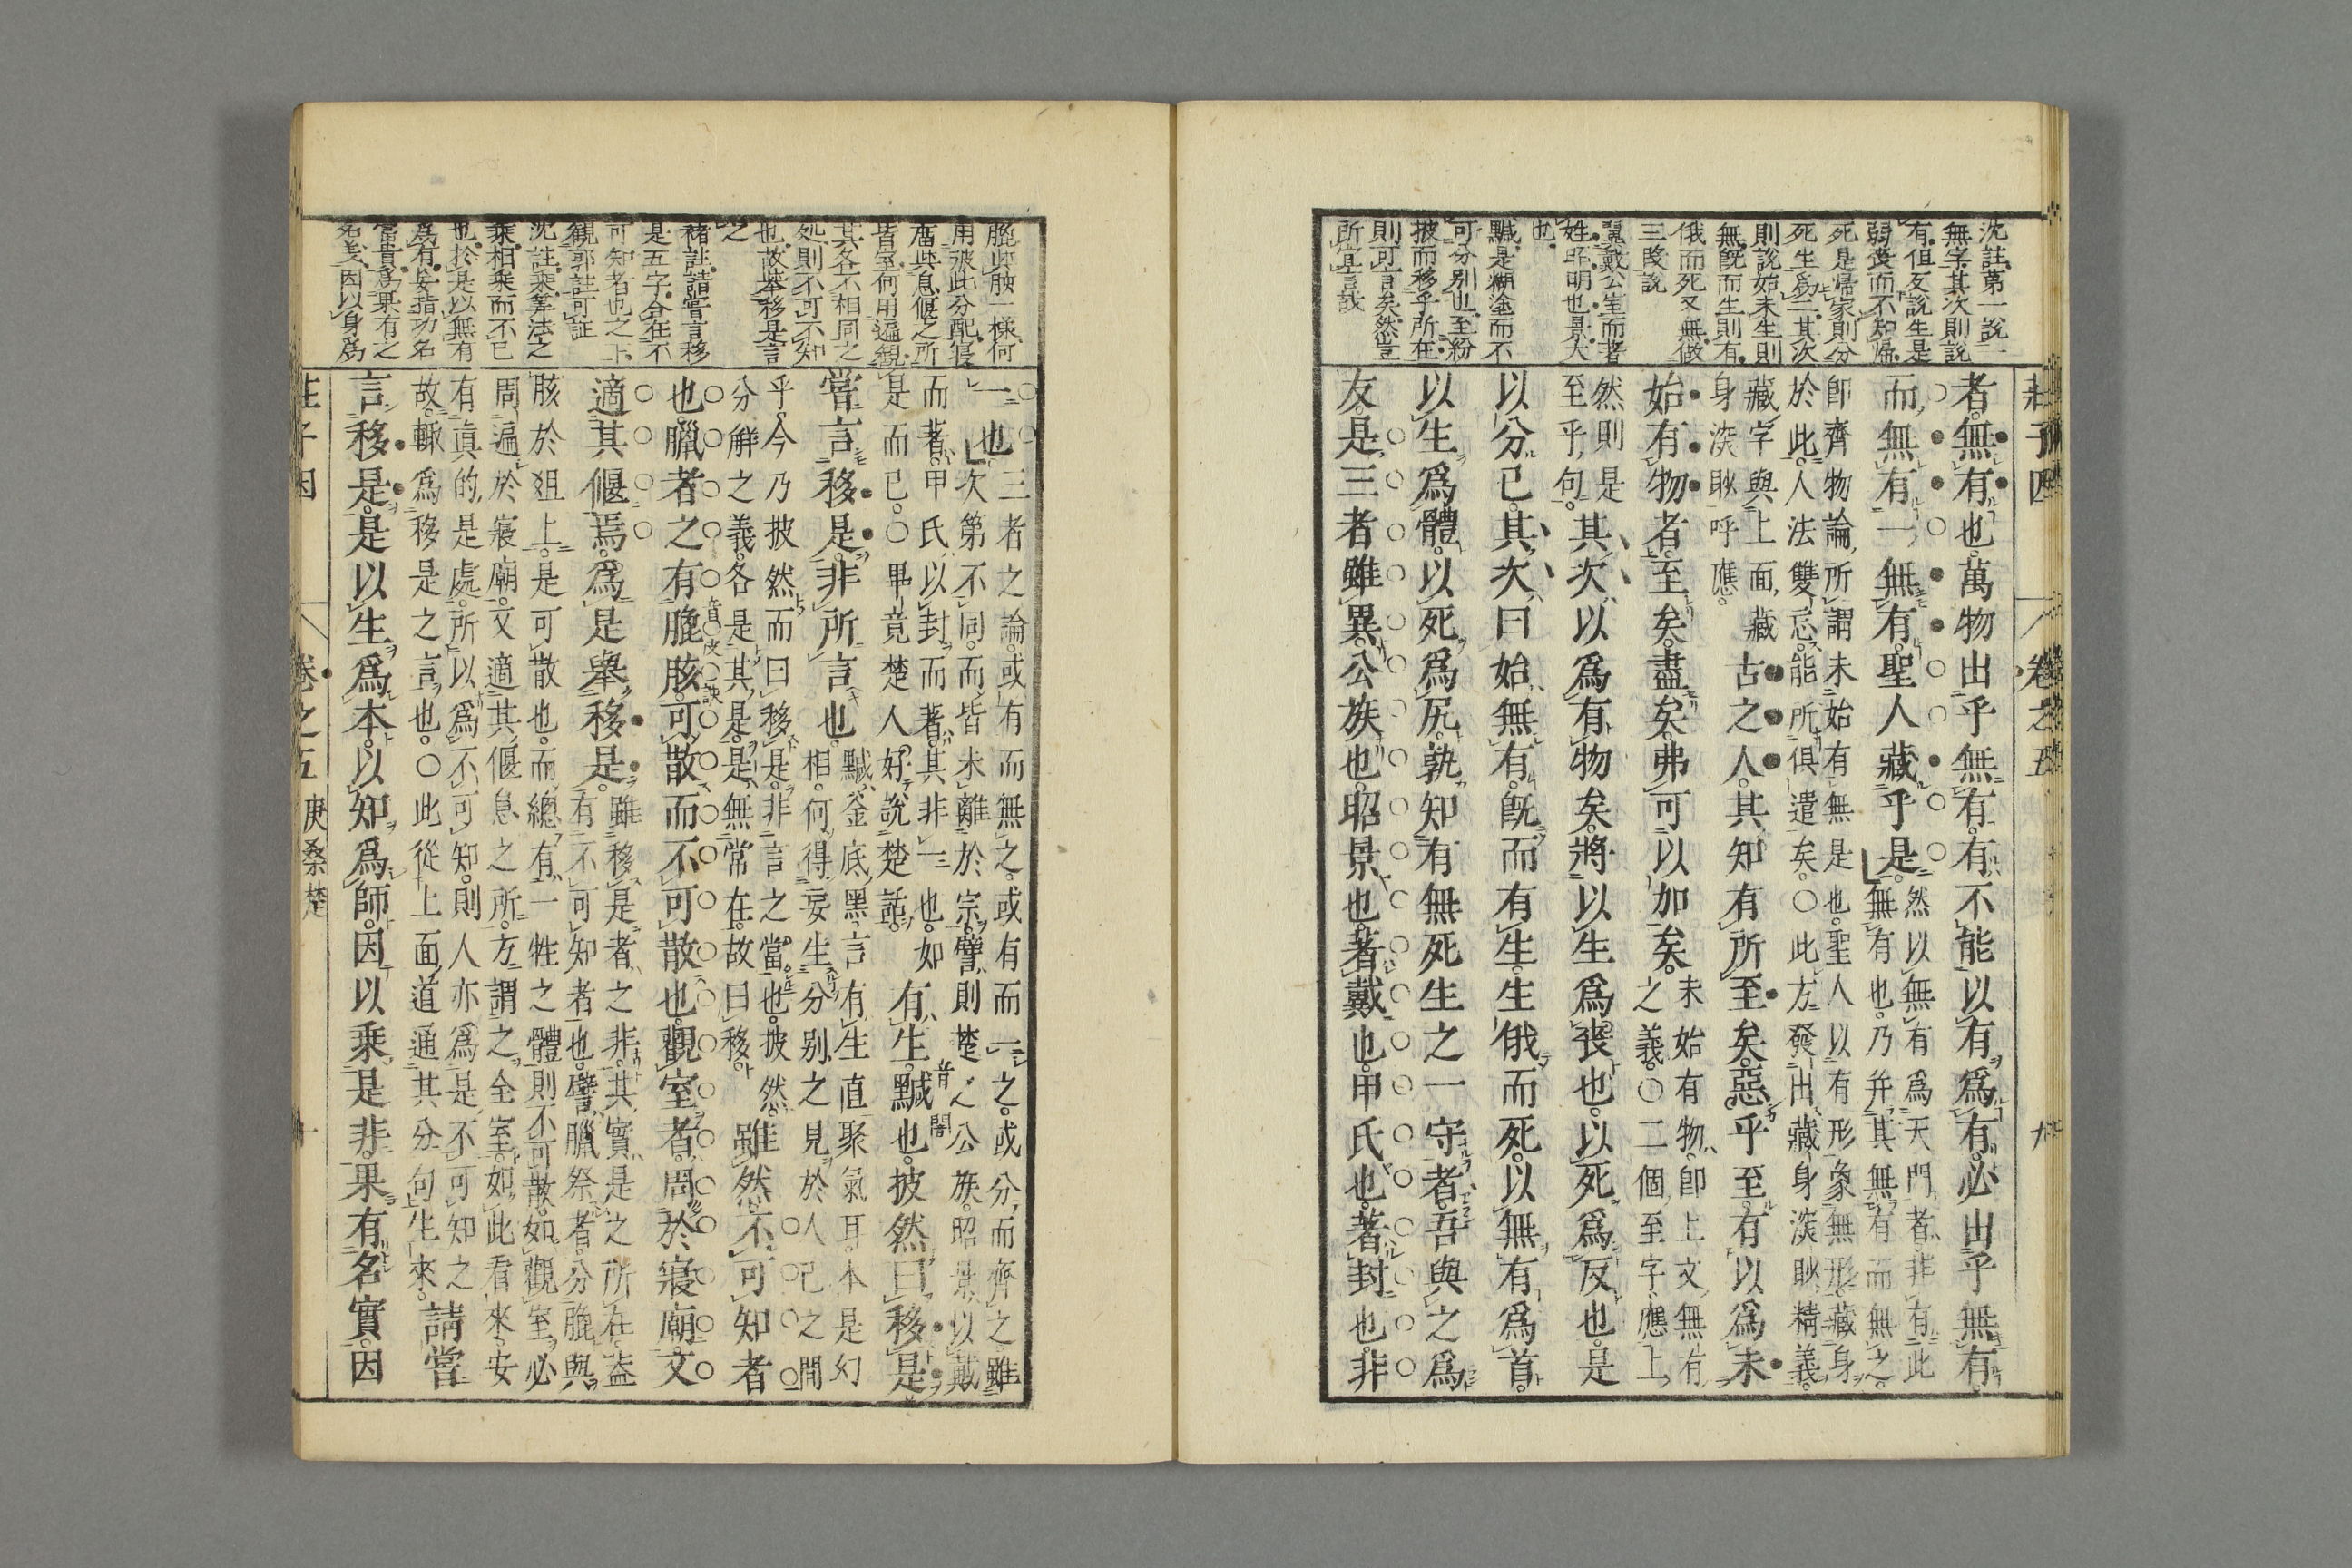 莊子因 卷之五 九
沈註第一說一
無字其次則說
有但反說生是
弱喪而不知歸
死是歸家則分
死生爲二其次
則說始未生則
無旣而生則有
俄而死又無做
三段說
戴公室而著
姓昭明也景大
也
黬是糊塗而不
可分別也至粉
披而移乎所在
則可言矣然豈
所宜言哉
者無有也萬物出乎無有有不能以有爲有必出乎無有
而無有一無有聖人藏乎是
然以無有爲天門者非有此
無有也乃并其無有而無之
即齊物論所謂未始有無是也聖人以有形象無形藏身
於此人法雙忘能所俱遣矣○此方發出藏身深眇精義
藏字與上面藏
身深眇呼應
古之人其知有所至矣惡乎至有以爲未
始有物者至矣盡矣弗可以加矣
未始有物即上文無有
之義○二個至字應上
然則是
至乎句
其次以爲有物矣將以生爲喪也以死爲反也是
以分已其次曰始無有旣而有生生俄而死以無有爲首
以生爲體以死爲尻孰知有無死生之一守者吾與之爲
友是三者雖異公族也昭景也著戴也甲氏也著封也非
膍此胲一樣何
用彼此分配寢
廟與息偃之所
皆室何用遍觀
其各不相同之
处則不可不知
也故舉移是言
之
褚註請嘗言移
是五字合在不
可知者也之下
觀郭註可証
沈註乘筭法之
乘相乘而不已
也於是以無有
爲有妄指功名
富貴爲果有之
名美因以身爲
一也
三者之論或有而無之或有而一之或分而齊之雖
次第不同而皆未離於宗譬則楚人公族昭景以戴
而著甲氏以封而著其非一也如
是而已○畢竟楚人好說楚話
有生黬
音闇
也披然曰移是
嘗言移是非所言也
黬釜底黑言有生直聚氣耳本是幻
相何得妄生分別之見於人己之間
乎今乃披然而曰移是非言之當也披然
分解之義各是其是是無常在故曰移
雖然不可知者
也臘者之有膍
音皮
胲可散而不可散也觀室者周於寢廟又
適其偃焉爲是舉移是
雖移是者之非其實是之所在葢
有不可知者也譬臘祭者分膍與
胲於俎上是可散也而總有一牲之體則不可散如觀室必
周遍於寢廟又適其偃息之所方謂之全室如此看來安
有眞的是處所以爲不可知則人亦爲是不可知之
故輒爲移是之言也○此從上面道通其分句生來
請嘗
言移是是以生爲本以知爲師因以乘是非果有名實因
莊子因 卷之五 庚桑楚 十